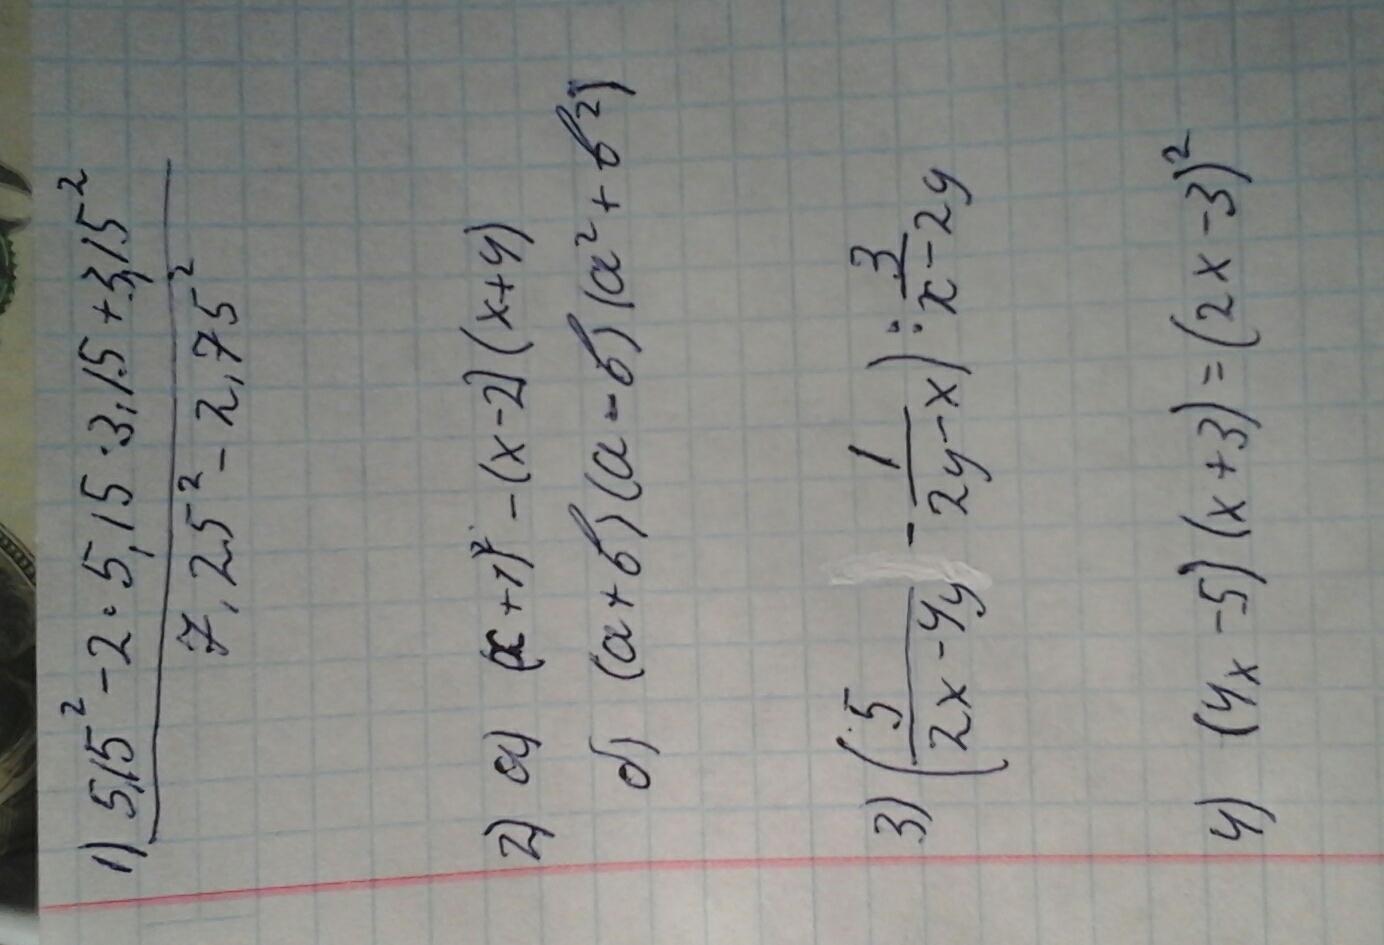 1) 5,15² - 2 · 5,15 · 3,15 + 3,15²
7,25² - 2,75²
2) а) (x+1)² - (x-2)(x+4)
б) (a+b)(a-b)(a²+b²)
3) (5/(2x-4y) - 1/(2y-x)) : 3/(x-2y)
4) (4x-5)(x+3)=(2x-3)²